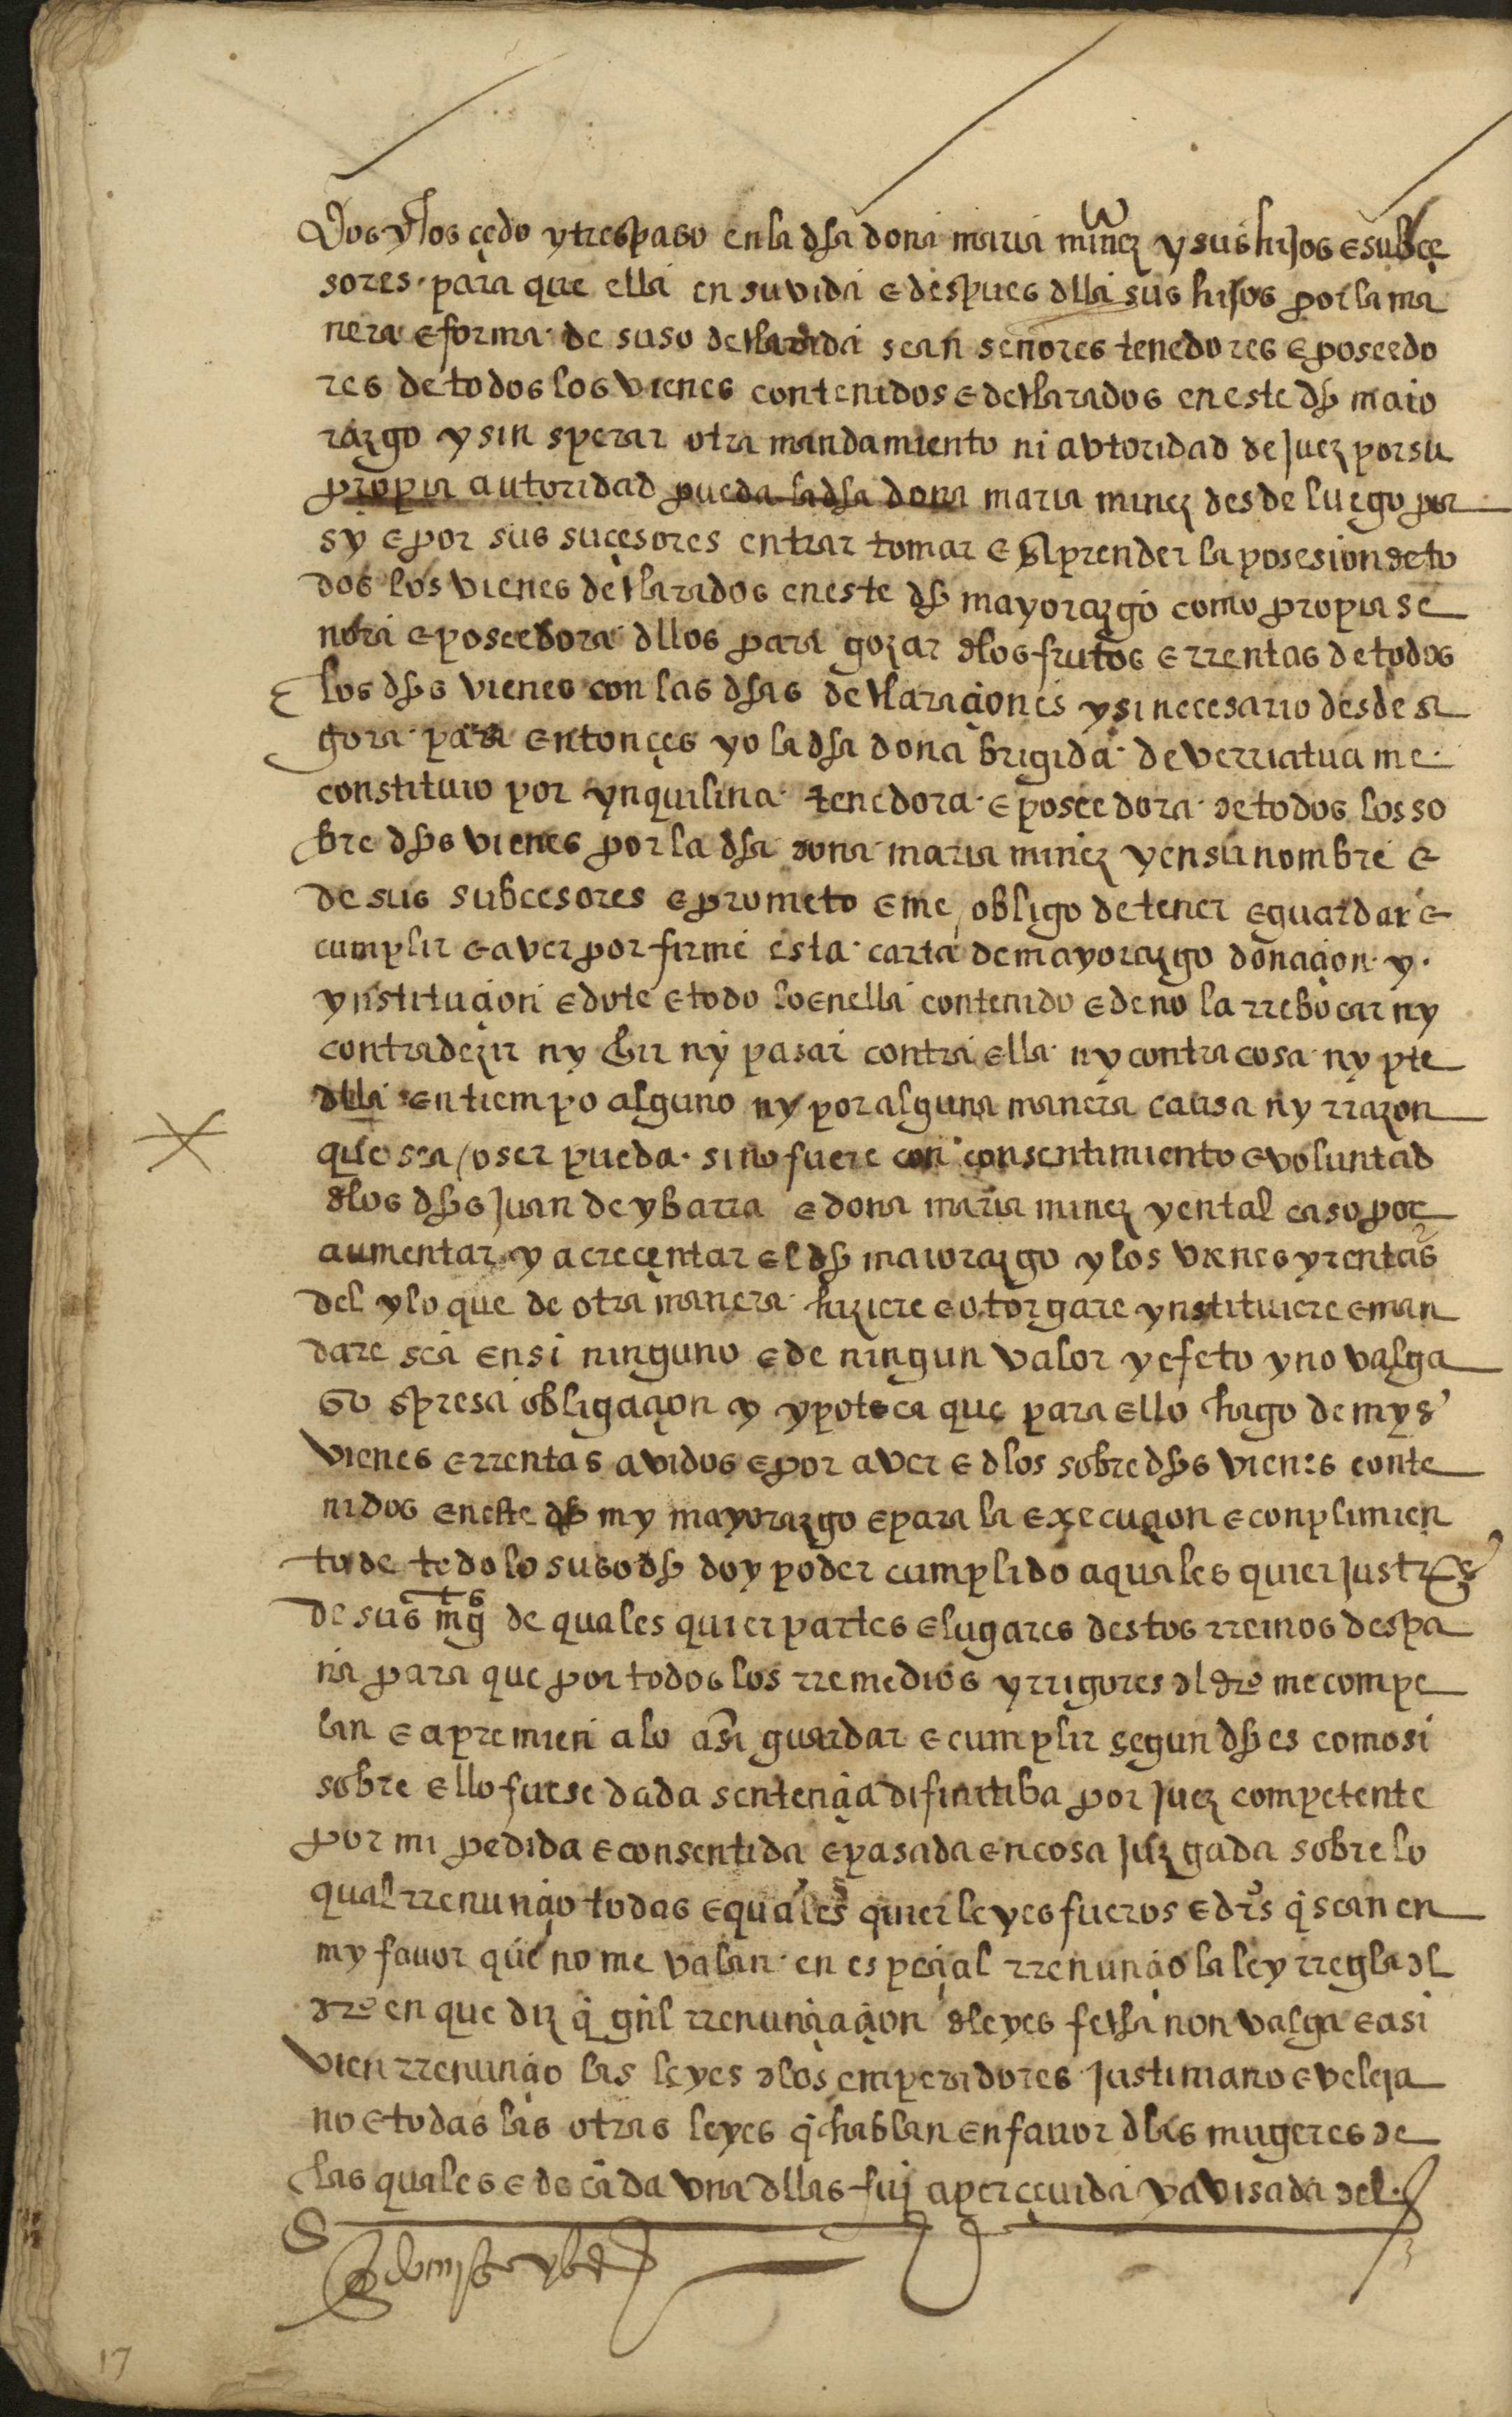 Dos yllos çedo y trespaso en la dha dona maria minez y sus hijos e subçe
sores para que ella en su vida e despues dlla sus hijos por la ma
nera e forma de suso declarada sean senores tenedores e poseedo
res de todos los vienes contenidos e declarados en este dho maio
razgo y sin sperar otra mandamiento ni avtoridad de juez por su
propia autoridad pueda la dha dona maria minez desde luego por
sy e por sus suçesores entrar tomar e aprender la posesion de to
dos los vienes declarados en este dho mayorazgo como propia se
nora e poseedora dllos para gozar dlos frutos e rrentas de todos
los dhos vienes con las dhas declaraçiones y si necesario desde a
gora para entonçes yo la dha dona brigida de verriatua me
constituio por ynquilina tenedora e poseedora de todos los so
bre dhos vienes por la dha dona maria minez y en su nombre e
de sus subcesores e prometo e me obligo de tener e guardar e
cumplir e aver por firme esta carta de mayorazgo donaçion y
ynstituçion e dote e todo lo en ella contenido e de no la rrebocar ny
contradezir ny yr ny pasar contra ella ny contra cosa ny pte
dlla en tiempo alguno ny por alguna manera causa ny rrazon
que sea / o ser pueda sino fuere con consentimiento e voluntad
dlos dhos juan de ybarra e dona maria minez y en tal caso por
aumentar y acreçentar el dho maiorazgo y los vienes y rentas
del y lo que de otra manera hiziere e otorgare ynstituiere e man
dare sea en si ninguno e de ningun valor y efeto y no valga
so spresa obligaçion y ypoteca que para ello hago de mys
vienes e rrentas avidos e por aver e dlos sobre dhos vienes conte
nidos en este dho my mayorazgo e para la execuçion e conplimien
to de todo lo susodho doy poder cumplido a quales quier justiçias
de sus mgts de quales quier partes e lugares destos rreinos despa
na para que por todos los rremedios y rrigores dl dro me compe
lan e apremien a lo asi guardar e cumplir segun dho es como si
sobre ello fuese dada sentençia difinitiba por juez competente
por mi pedida e consentida e pasada en cosa juzgada sobre lo
qual rrenunçio todas e quales quier leyes fueros e drs q sean en
my favor que no me valan en espeçial rrenunçio la ley rregla dl
dro en que diz q gnl rrenunçiaçion dleyes fecha non valga e asi
vien rrenunçio las leyes dlos emperadores justiniano e veleja
no e todas las otras leyes q hablan en favor dlas mugeres de
las quales e de cada una dllas fuy aperçeuida y avisada del
17